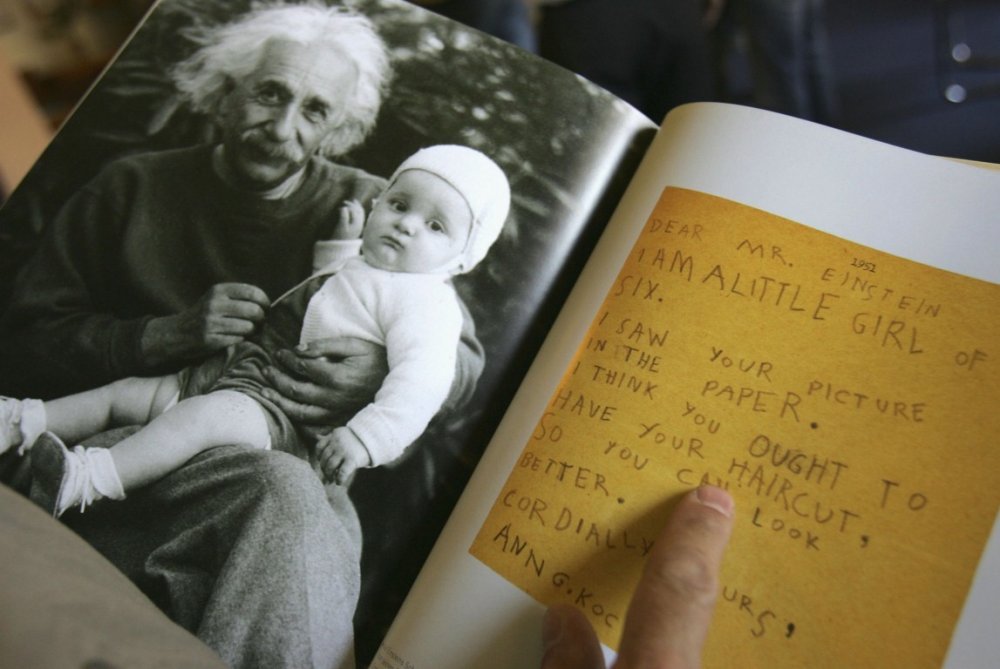 1951
DEAR MR. EINSTEIN
I AM A LITTLE GIRL OF
SIX.
I SAW YOUR PICTURE
IN THE PAPER.
I THINK YOU OUGHT TO
HAVE YOUR HAIRCUT,
SO YOU CAN LOOK
BETTER.
CORDIALLY URS,
ANN G. KOC